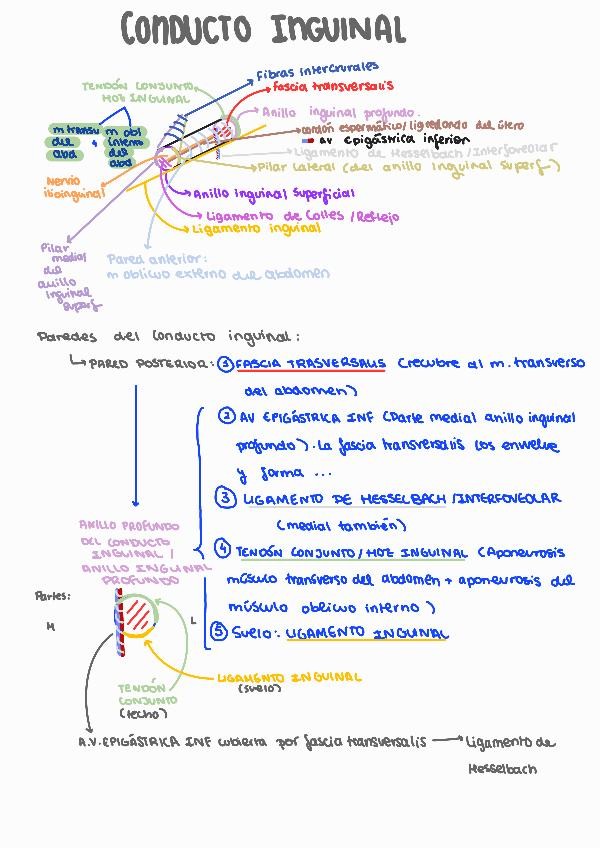 CONDUCTO INGUINAL
Fibras intercrurales
TENDÓN CONJUNTO
HOZ INGUINAL
fascia transversalis
Anillo inguinal profundo.
m transv m obl
del + interno
abd del
abd
cordón espermático/lig redondo del útero
AV epigástrica inferior
Ligamento de Hesselbach/Interfoveolar
Pilar Lateral (del anillo inguinal superf)
Nervio
ilioinguinal
Anillo inguinal Superficial
Ligamento de Colles /Reflejo
Ligamento inguinal
Pilar
medial
del
anillo
inguinal
superf
Pared anterior:
m oblicuo externo del abdomen
Paredes del conducto inguinal:
↳ PARED POSTERIOR: ① FASCIA TRASVERSALIS (recubre al m. transverso
del abdomen)
② AV EPIGÁSTRICA INF (Parte medial anillo inguinal
profundo). La fascia transversalis los envuelve
y forma ...
③ LIGAMENTO DE HESSELBACH /INTERFOVEOLAR
(medial también)
④ TENDÓN CONJUNTO/HOZ INGUINAL (Aponeurosis
músculo transverso del abdomen + aponeurosis del
músculo oblicuo interno)
⑤ Suelo: LIGAMENTO INGUINAL
ANILLO PROFUNDO
DEL CONDUCTO
INGUINAL /
ANILLO INGUINAL
PROFUNDO
Partes:
M
L
LIGAMENTO INGUINAL
(suelo)
TENDÓN
CONJUNTO
(techo)
A.V. EPIGÁSTRICA INF cubierta por fascia transversalis → Ligamento de
Hesselbach